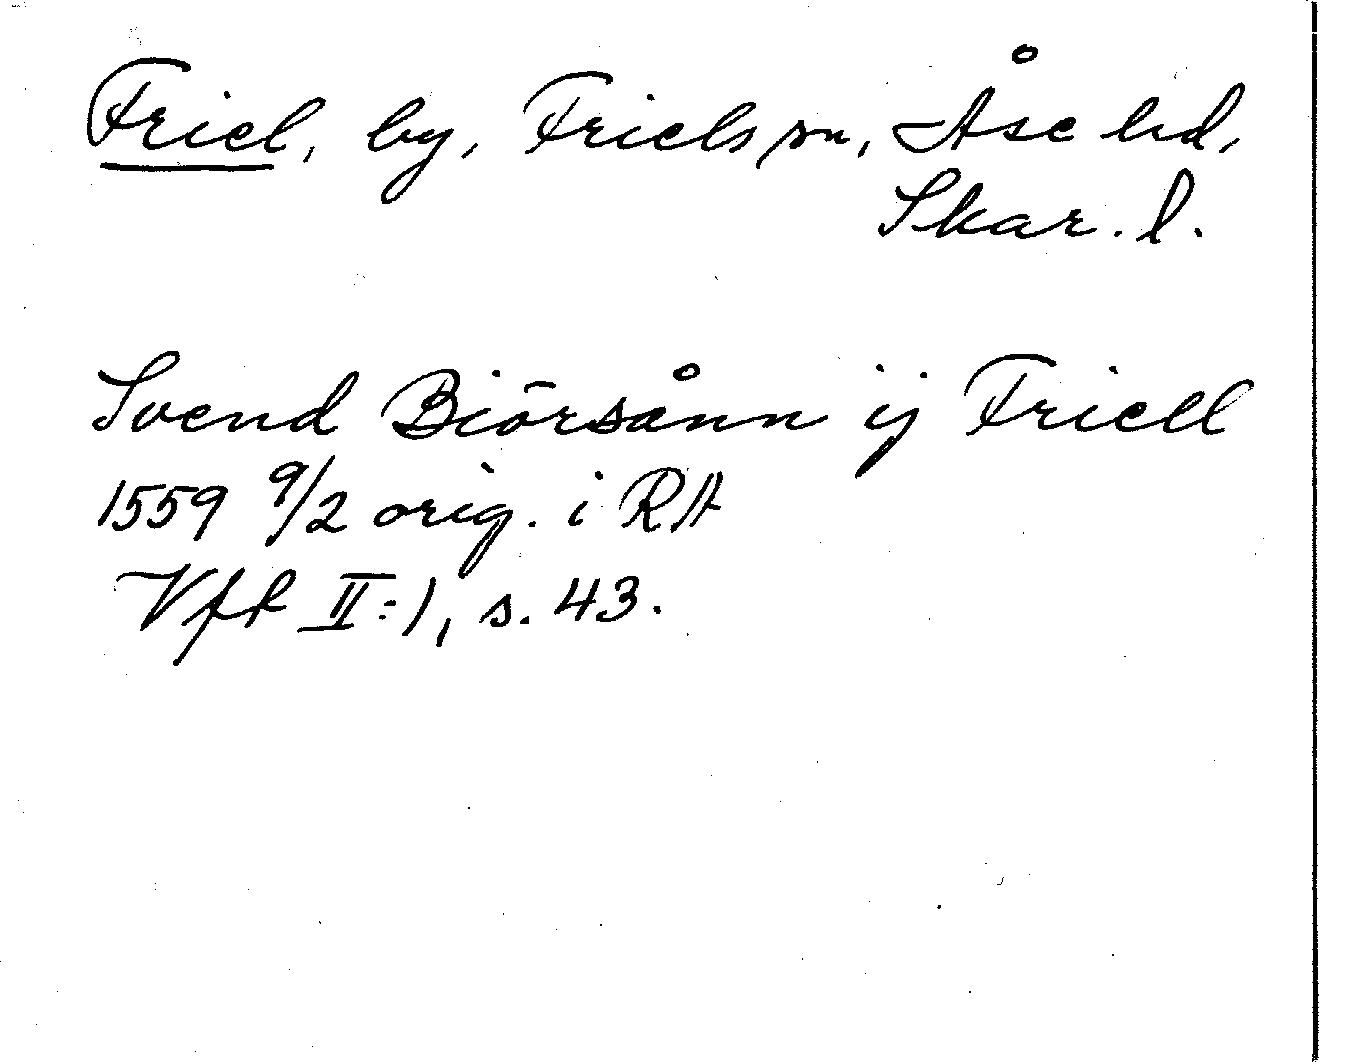 Friel, by, Friels sn, Åse hd,
Skar. l.
Svend Biörsånn ij Friell
1559 9/2 orig. i RA
Vfr II:1, s. 43.